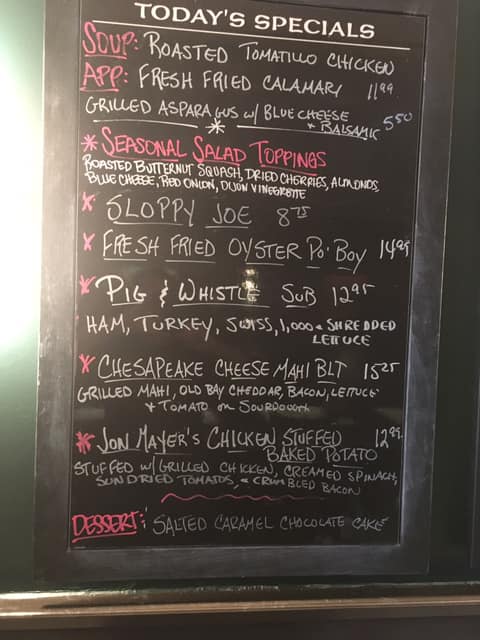 TODAY'S SPECIALS
SOUP: ROASTED TOMATILLO CHICKEN
APP: FRESH FRIED CALAMARI 11.99
GRILLED ASPARAGUS w/ BLUE CHEESE
+ BALSAMIC 5.50
* SEASONAL SALAD TOPPINGS
ROASTED BUTTERNUT SQUASH, DRIED CHERRIES, ALMONDS,
BLUE CHEESE, RED ONION, DIJON VINEGRETTE
* SLOPPY JOE 8.75
* FRESH FRIED OYSTER PO'BOY 14.99
* PIG & WHISTLE SUB 12.95
HAM, TURKEY, SWISS, 1,000 + SHREDDED
LETTUCE
* CHESAPEAKE CHEESE MAHI BLT 15.25
GRILLED MAHI, OLD BAY CHEDDAR, BACON, LETTUCE
+ TOMATO on SOURDOUGH
* JON MAYER'S CHICKEN STUFFED 12.99
BAKED POTATO
STUFFED w/ GRILLED CHICKEN, CREAMED SPINACH,
SUNDRIED TOMATOS, + CRUMBLED BACON
DESSERT: SALTED CARAMEL CHOCOLATE CAKE